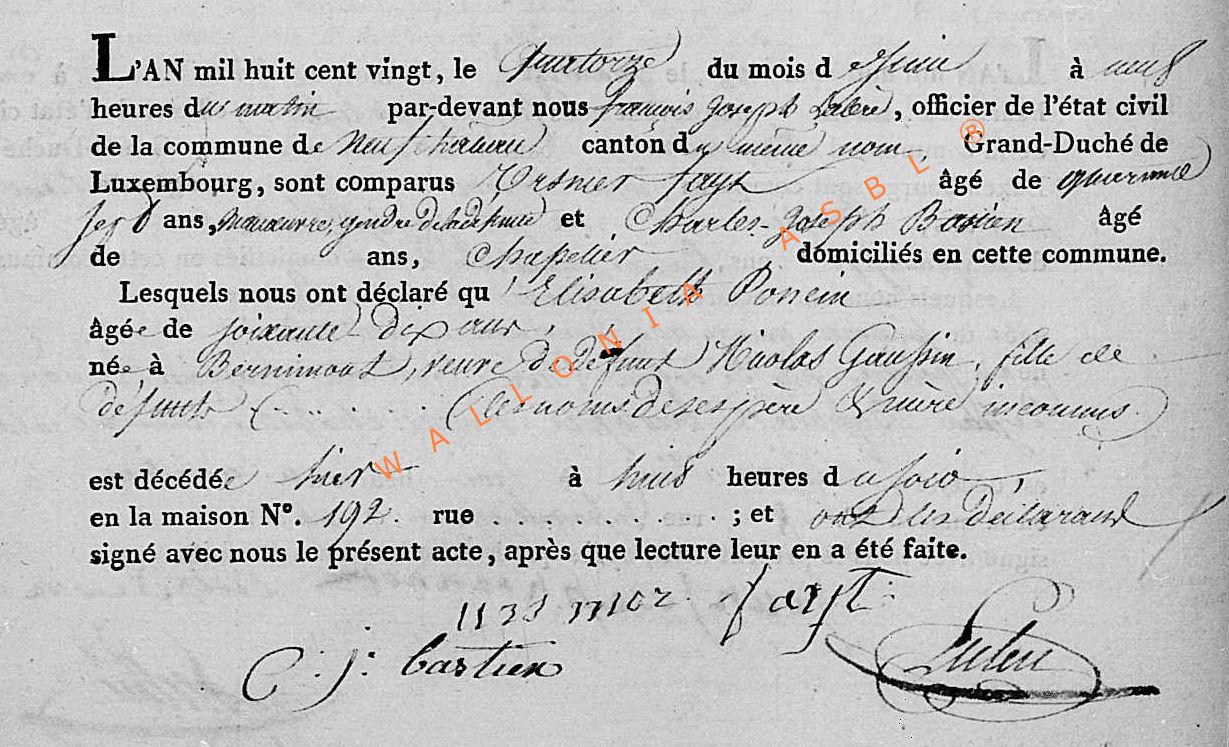 L'AN mil huit cent vingt, le Quatorze du mois d e Juin à neuf
heures du matin par-devant nous françois Joseph, officier de l'état civil
de la commune de Neufchateau canton du même nom, Grand-Duché de
Luxembourg, sont comparus Ursmer fayt âgé de quarante
sept ans, manoeuvre, gendre de la défunte et Charles-Joseph Bastien âgé
de ans, Chapelier domiciliés en cette commune.
Lesquels nous ont déclaré qu'Elisabeth Poncin
âgée de soixante dix ans,
née à Bernimont, veuve de défunt Nicolas Gaussin, fille de
défunts (. . . . . . . (les noms de ses père & mère inconnus.)
est décédée hier à huit heures du soir,
en la maison N°. 192. rue . . . . . . . . . ; et ont les déclarans
signé avec nous le présent acte, après que lecture leur en a été faite.
fayt
C: j: bastien
WALLONIA ASBL ®